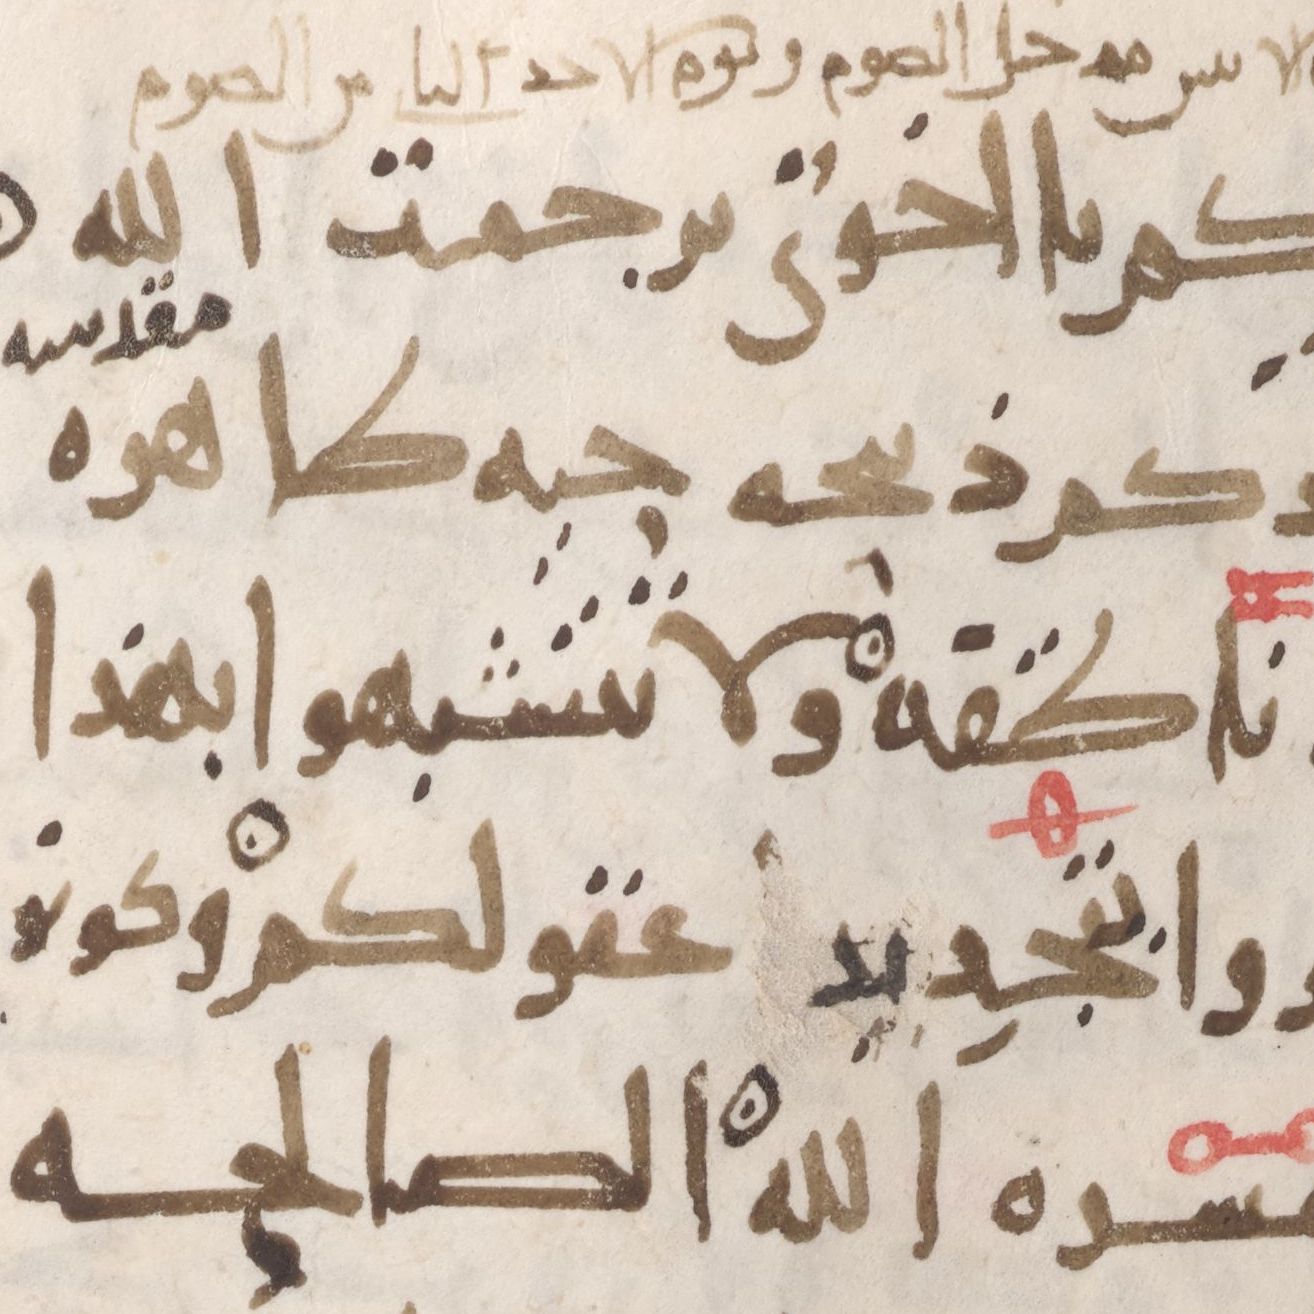 الاثنين مدخل الصوم ويوم الاحد الثا من الصوم
كم يا اخوتي برحمت الله
مقدسه
وكم ذبيحه حيه طاهره
ناطقه ولا تتشبهوا بهذا ا
و وا بتجديد عقولكم وكونو
مسره الله الصالحه